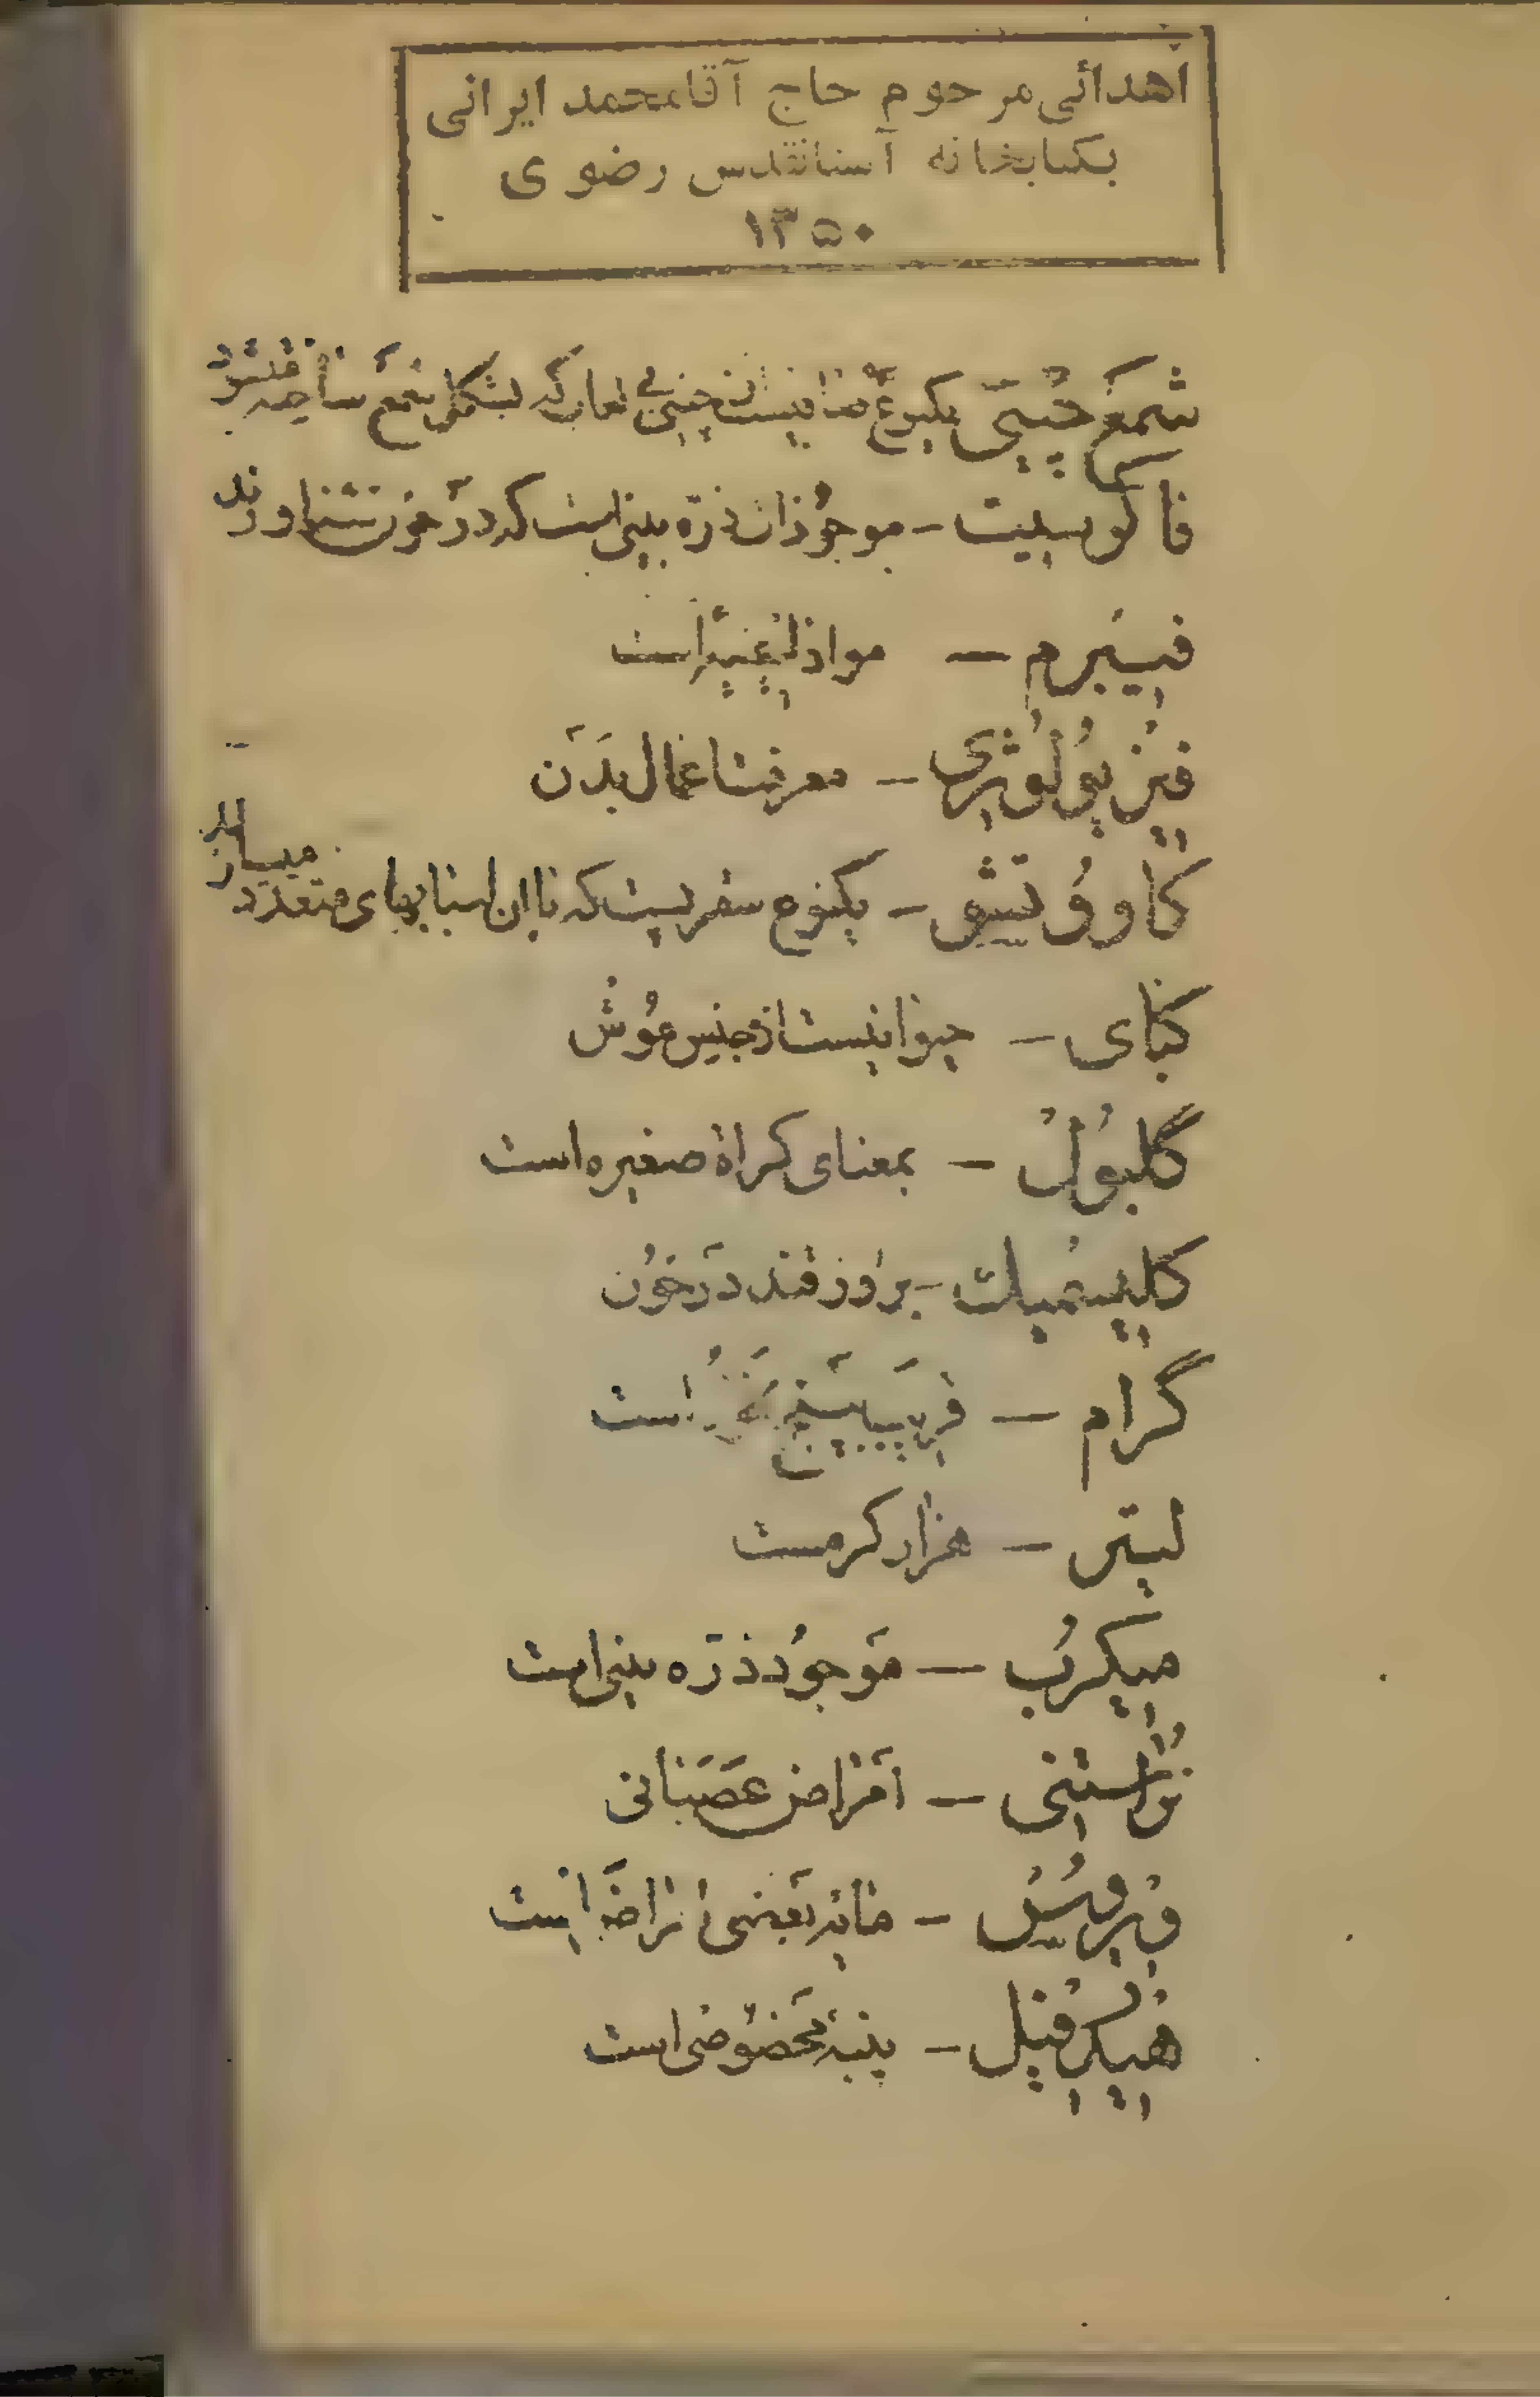 اهدائی مرحوم حاج آقا محمد ایرانی
بکتابخانه آستانقدس رضوی
۱۳۵۰
شمع چینی یکنوع که بشکل شمع ساخته میشود
فاگوسیت - موجودات ذره بینی است که در خون شناورند
فیبرم - مواد لیفیه است
فیزیولوژی - معرفت اعمال بدن
کااوفتشو - یکنوع سقزیست که با آن اسبابهای متعدد میسازند
کبای - حیوانیست از جنس موش
گلبول - بمعنای کراة صغیره است
کلیسمی - بروز قند در خون
گرام - قریب پنج نخود است
لیتر - هزار کرمست
میکرب - موجود ذره بینی است
نراستنی - امراض عصبانی
ویروس - مایه بعضی امراضه است
هیدروفیل - پنبه مخصوصی است